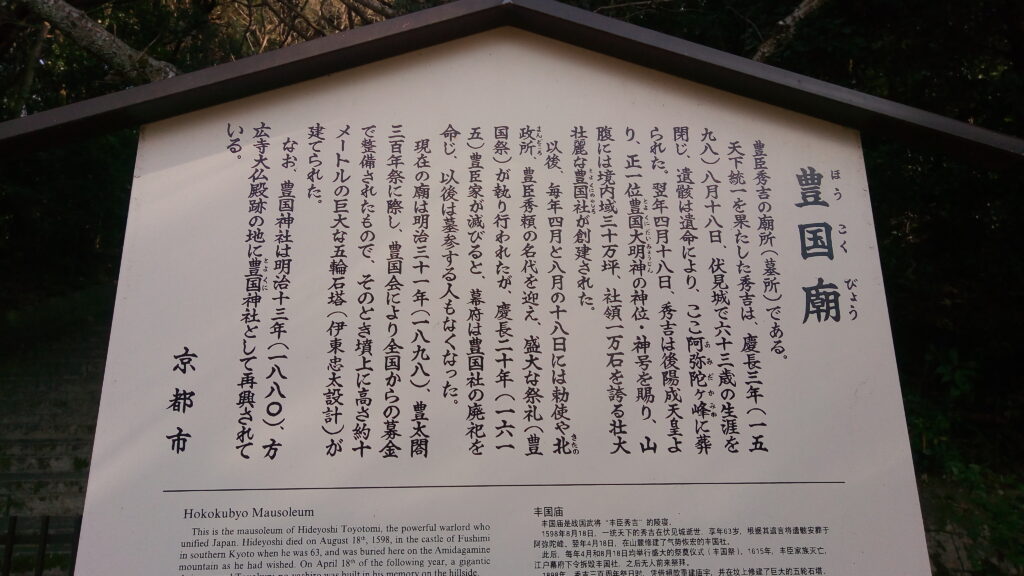 豊国廟
ほうこくびょう
豊臣秀吉の廟所（墓所）である。
天下統一を果たした秀吉は、慶長三年（一五
九八）八月十八日、伏見城で六十三歳の生涯を
閉じ、遺骸は遺命により、ここ阿弥陀ヶ峰に葬
られた。翌年四月十八日、秀吉は後陽成天皇よ
り、正一位豊国大明神の神位・神号を賜り、山
腹には境内域三十万坪、社領一万石を誇る壮大
壮麗な豊国社が創建された。
以後、毎年四月と八月の十八日には勅使や北
政所、豊臣秀頼の名代を迎え、盛大な祭礼（豊
国祭）が執り行われたが、慶長二十年（一六一
五）豊臣家が滅びると、幕府は豊国社の廃祀を
命じ、以後は墓参する人もなくなった。
現在の廟は明治三十一年（一八九八）、豊太閤
三百年祭に際し、豊国会により全国からの募金
で整備されたもので、そのとき墳上に高さ約十
メートルの巨大な五輪石塔（伊東忠太設計）が
建てられた。
なお、豊国神社は明治十三年（一八八〇）、方
広寺大仏殿跡の地に豊国神社として再興されて
いる。
京都市
Hokokubyo Mausoleum
This is the mausoleum of Hideyoshi Toyotomi, the powerful warlord who
unified Japan. Hideyoshi died on August 18th, 1598, in the castle of Fushimi
in southern Kyoto when he was 63, and was buried here on the Amidagamine
mountain as he had wished. On April 18th of the following year, a gigantic
was built in his memory on the hillside.
丰国庙
丰国庙是战国武将“丰臣秀吉”的陵寝。
1598年8月18日，一统天下的秀吉在伏见城逝世，享年63岁，根据其遗言将遗骸安葬于
阿弥陀峰。翌年4月18日，在山麓修建了气势恢宏的丰国社。
此后，每年4月和8月18日均举行盛大的祭奠仪式（丰国祭）。1615年，丰臣家族灭亡，
江户幕府下令拆毁丰国社，之后无人前来祭拜。